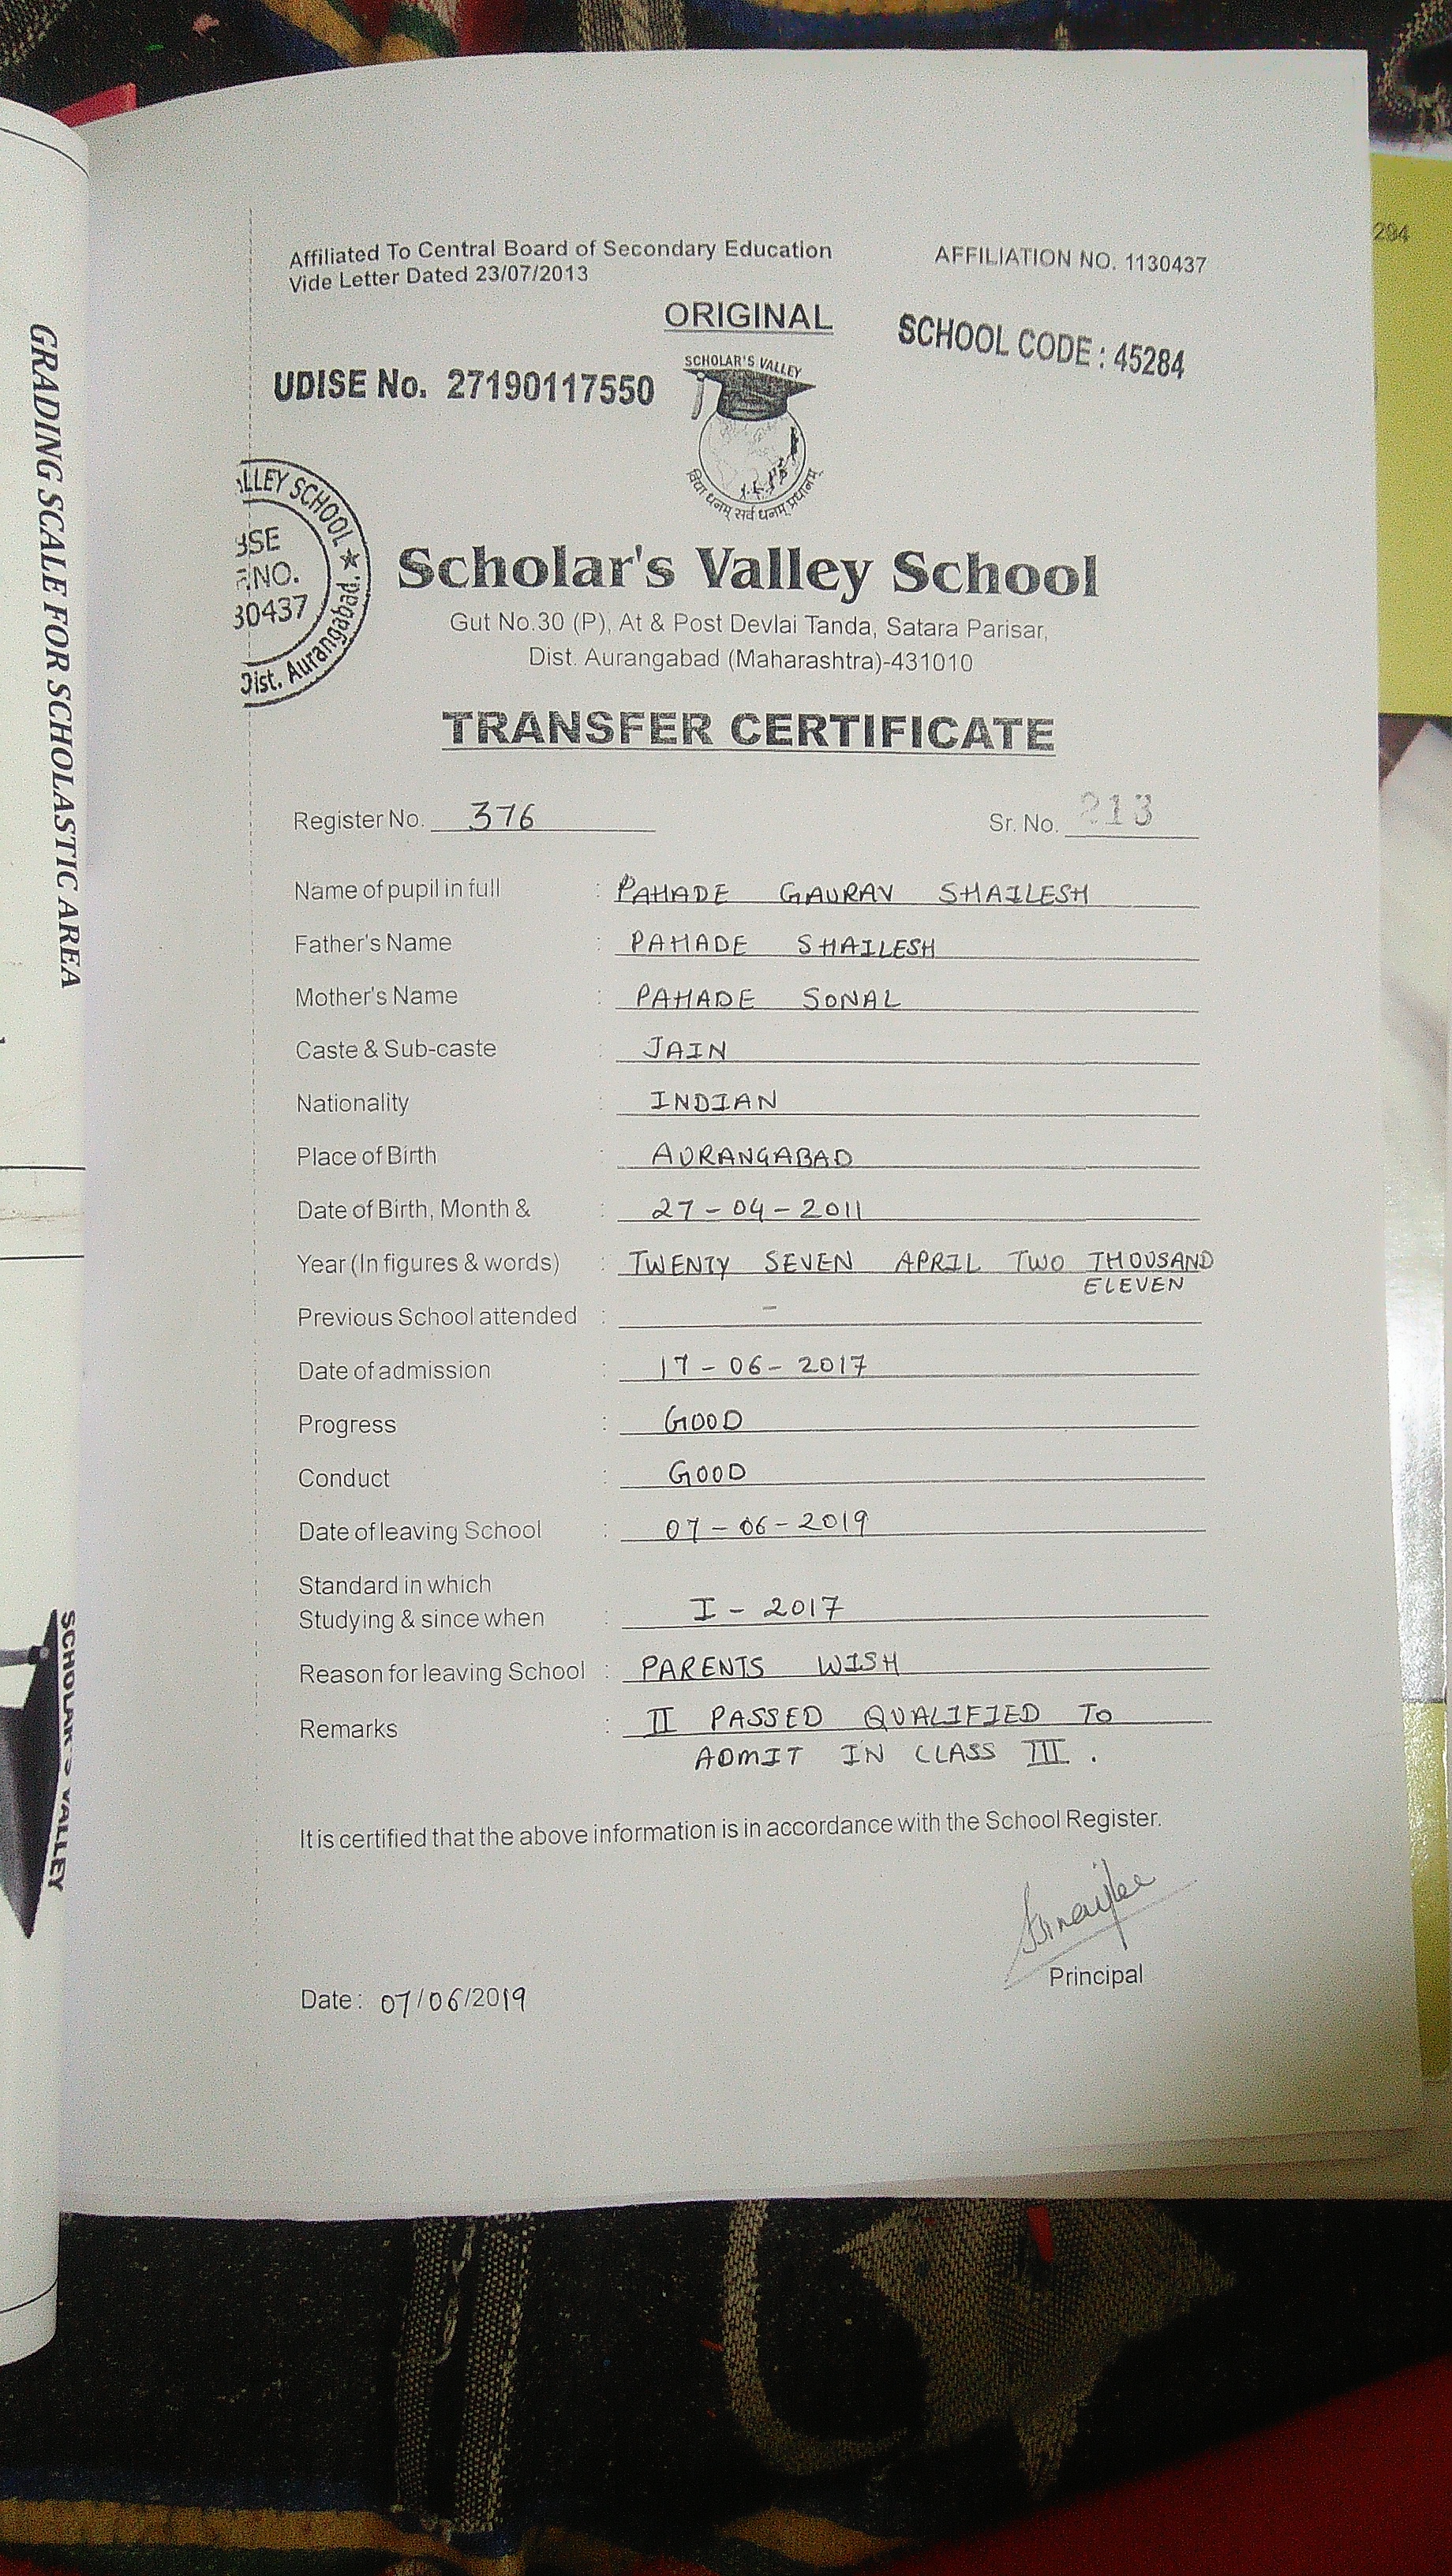 Affiliated To Central Board of Secondary Education
Vide Letter Dated 23/07/2013
AFFILIATION NO. 1130437
ORIGINAL
SCHOOL CODE : 45284
UDISE No. 27190117550
SCHOLAR'S VALLEY
विद्या धनम् सर्व धनम् प्रधानम्
LLEY SCHOOL ★
BSE
NO.
30437
Dist. Aurangabad.
Scholar's Valley School
Gut No.30 (P), At & Post Devlai Tanda, Satara Parisar,
Dist. Aurangabad (Maharashtra)-431010
TRANSFER CERTIFICATE
Register No. 376
Sr. No. 213
Name of pupil in full : PAHADE GAURAV SHAILESH
Father's Name : PAHADE SHAILESH
Mother's Name : PAHADE SONAL
Caste & Sub-caste : JAIN
Nationality : INDIAN
Place of Birth : AURANGABAD
Date of Birth, Month & : 27-04-2011
Year (In figures & words) : TWENTY SEVEN APRIL TWO THOUSAND
ELEVEN
Previous School attended : -
Date of admission : 17-06-2017
Progress : GOOD
Conduct : GOOD
Date of leaving School : 07-06-2019
Standard in which
Studying & since when : I - 2017
Reason for leaving School : PARENTS WISH
Remarks : II PASSED QUALIFIED TO
ADMIT IN CLASS III .
It is certified that the above information is in accordance with the School Register.
Principal
Date : 07/06/2019
GRADING SCALE FOR SCHOLASTIC AREA
SCHOLAR'S VALLEY
284